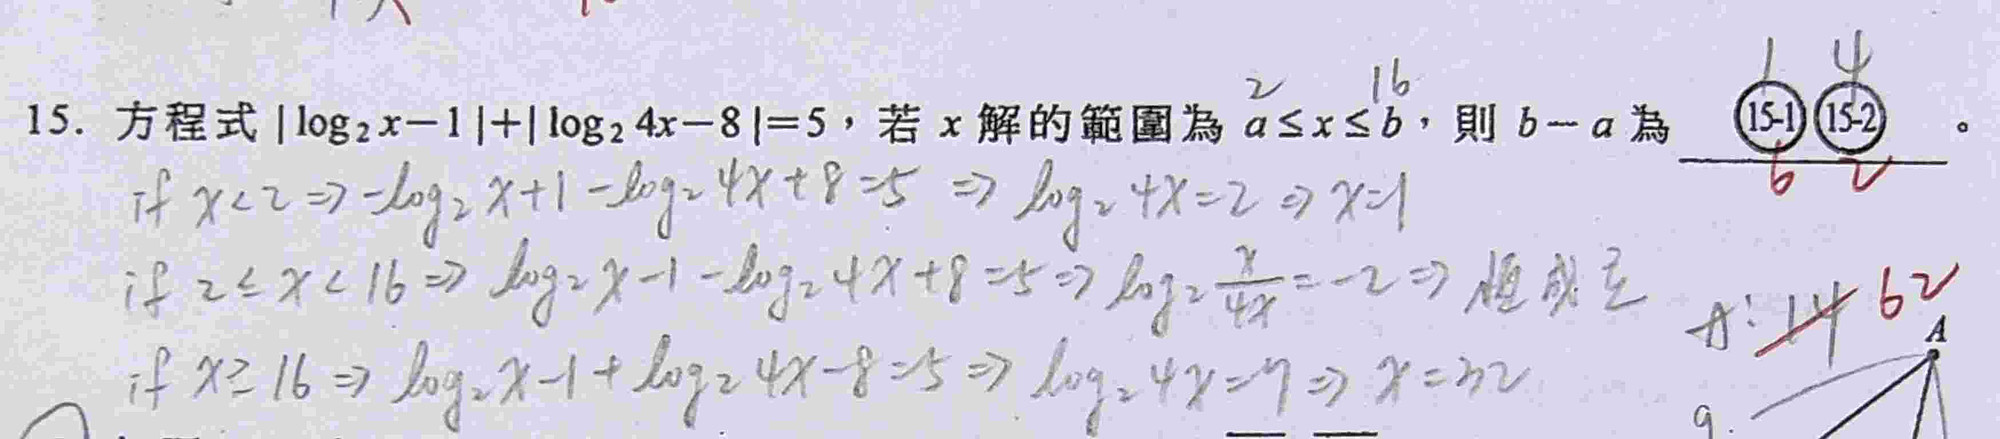 2 16 1 4
15. 方程式 |log₂x−1|+|log₂4x−8|=5，若 x 解的範圍為 a≤x≤b，則 b−a 為 (15-1)(15-2)。
6 2
if x<2 ⇒ -log₂x+1-log₂4x+8=5 ⇒ log₂4x=2 ⇒ x=1
if 2≤x<16 ⇒ log₂x-1-log₂4x+8=5 ⇒ log₂ x/4x =-2 ⇒ 恆成立
A: 14 62
if x≥16 ⇒ log₂x-1+log₂4x-8=5 ⇒ log₂4x=7 ⇒ x=32
A
9.